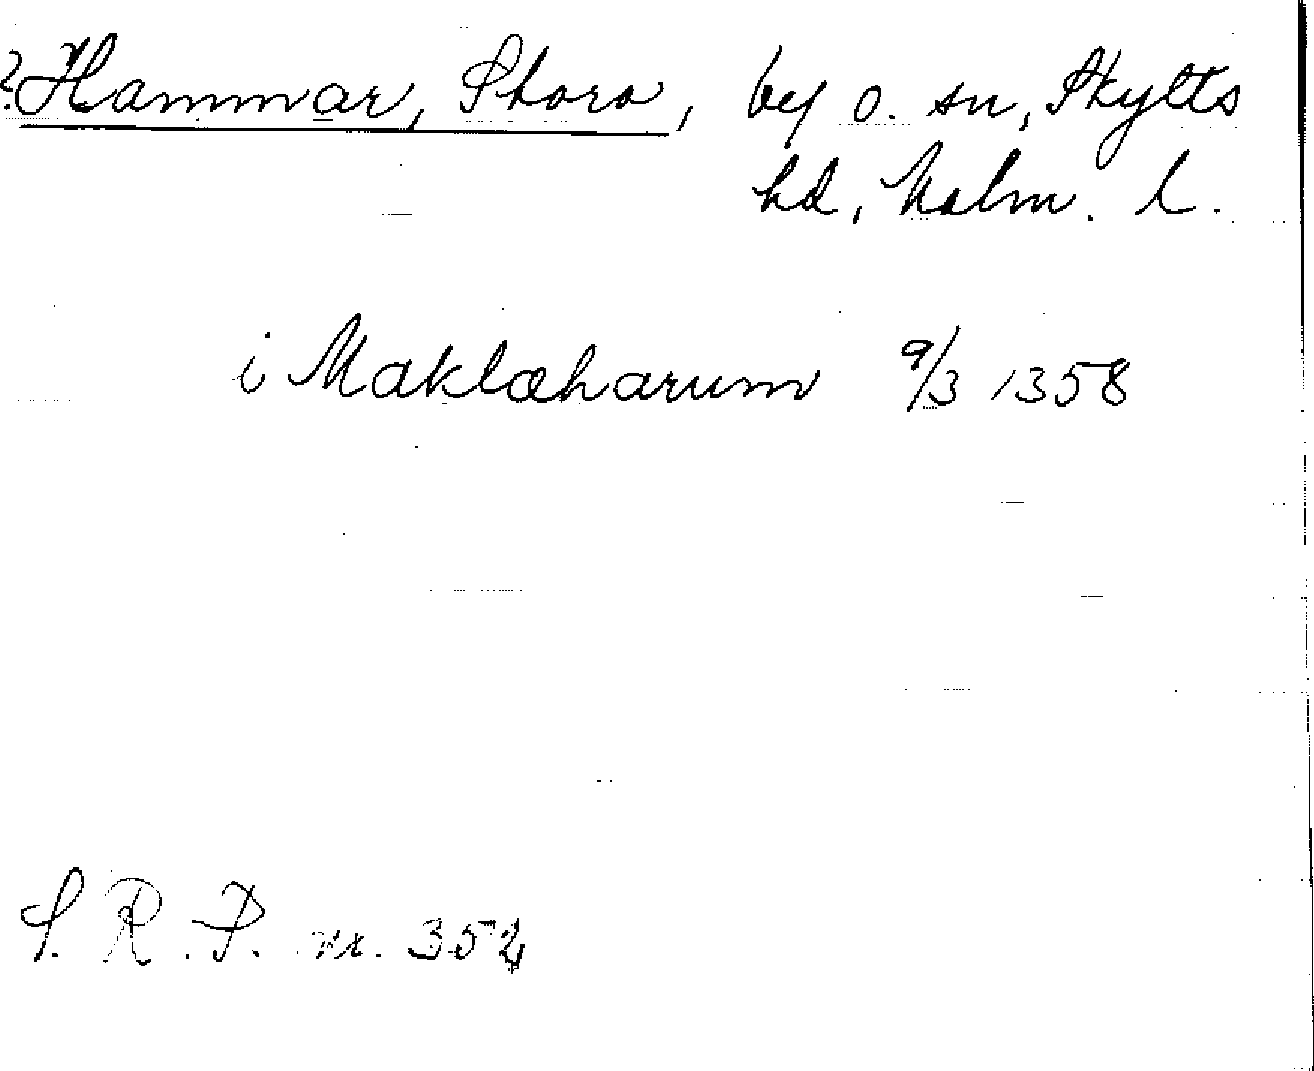 ?Hammar, Stora, by o. sn, Skytts
hd, Malm. l.
i Maklæharum 9/3 1358
S. R. P. nr. 352